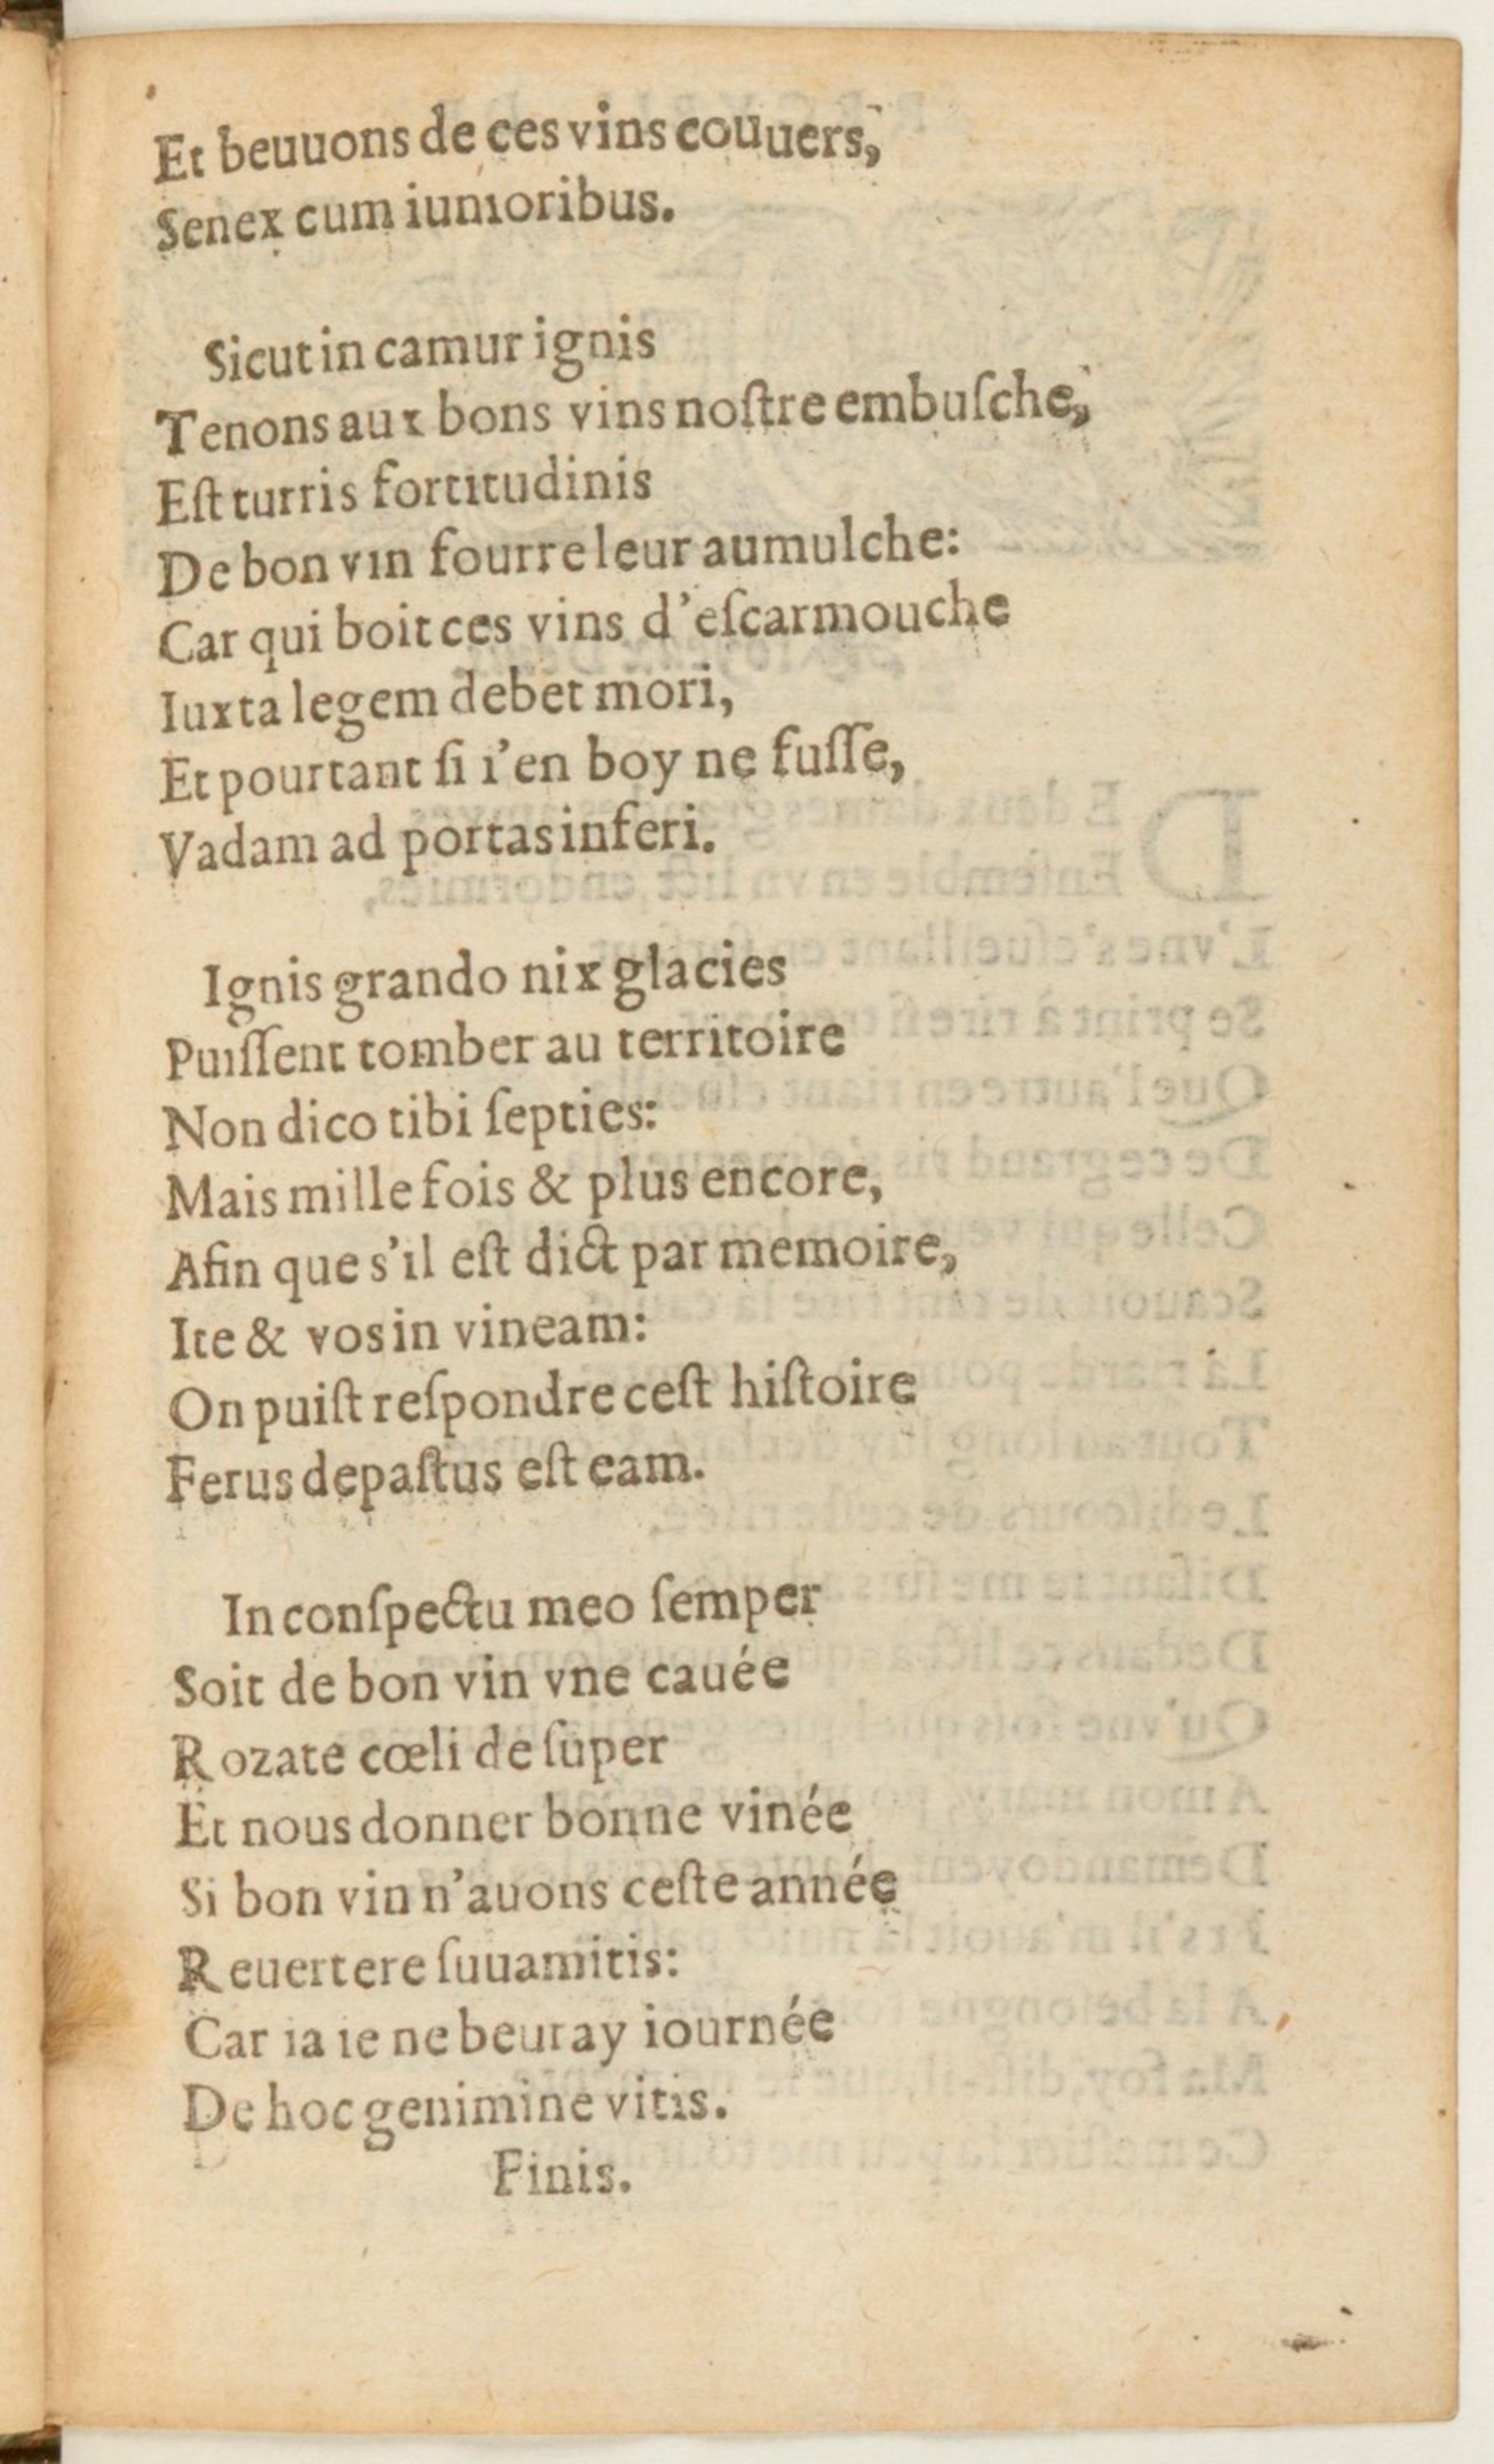 Et beuuons de ces vins couuers,
Senex cum iunioribus.
Sicut in camur ignis
Tenons aux bons vins noſtre embuſche,
Eſt turris fortitudinis
De bon vin fourre leur aumulche:
Car qui boit ces vins d'eſcarmouche
Iuxta legem debet mori,
Et pourtant ſi i'en boy ne fuſſe,
Vadam ad portas inferi.
Ignis grando nix glacies
Puiſſent tomber au territoire
Non dico tibi ſepties:
Mais mille fois & plus encore,
Afin que s'il eſt dict par memoire,
Ite & vos in vineam:
On puiſt reſpondre ceſt hiſtoire
Ferus depaſtus eſt eam.
In conſpectu meo ſemper
Soit de bon vin vne cauée
Rozate cœli de ſuper
Et nous donner bonne vinée
Si bon vin n'auons ceſte année
Reuertere ſuuamitis:
Car ia ie ne beuray iournée
De hoc genimine vitis.
Finis.